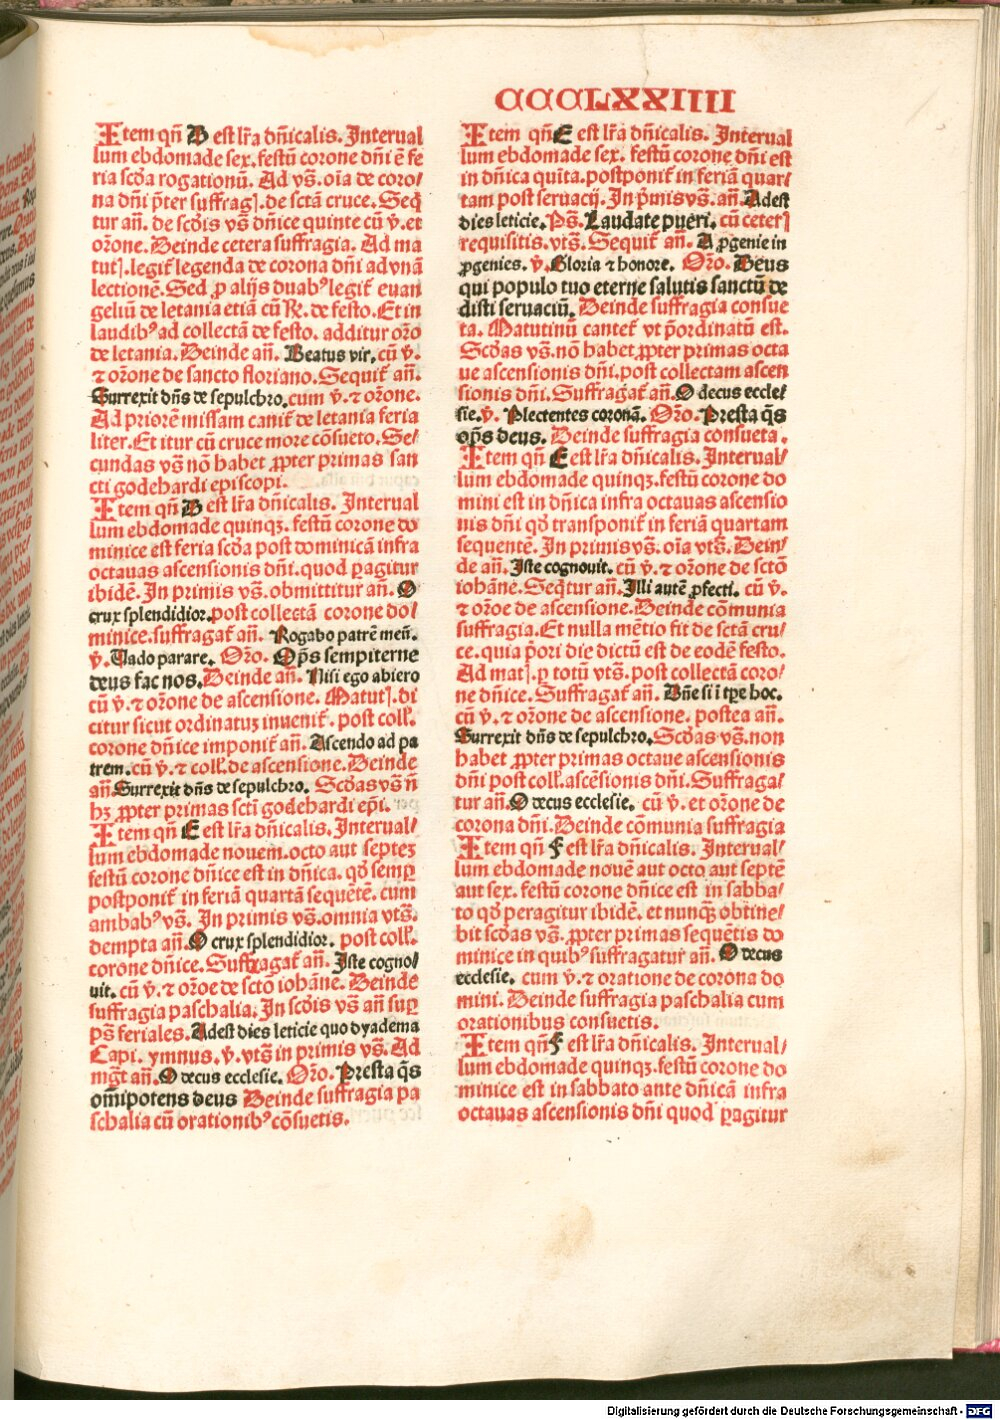 CCCLXXIIII
Item qn̄ B est lr̄a dn̄icalis. Interual
lum ebdomade sex. festū corone dn̄i ē fe
ria scd̄a rogationū. Ad vs̄. oīa de coro/
na dn̄i p̄ter suffragꝭ. de sctā cruce. Seq̄
tur an̄. de scd̄is vs̄ dn̄ice quinte cū v̄. et
or̄one. Deinde cetera suffragia. Ad ma
tutꝭ. legit᷑ legenda de corona dn̄i ad vnā
lectionē. Sed ꝓ alijs duabꝰ legit᷑ euan
geliū de letania etiā cū R̄. de festo. Et in
laudibꝰ ad collectā de festo. additur or̄o
de letania. Deinde an̄. Beatus vir. cū v̄.
⁊ or̄one de sancto floriano. Sequit᷑ an̄.
Surrexit dn̄s de sepulchro. cum v̄. ⁊ or̄one.
Ad priorē missam canit᷑ de letania feria
liter. Et itur cū cruce more cōsueto. Se/
cundas vs̄ nō habet ꝓpter primas san
cti godehardi episcopi.
Item qn̄ B est lr̄a dn̄icalis. Interual
lum ebdomade quinqꝫ. festū corone do
minice est feria scd̄a post dominicā infra
octauas ascensionis dn̄i. quod ꝑagitur
ibidē. In primis vs̄. obmittitur an̄. O
crux splendidior. post collectā corone do/
minice. suffragat᷑ an̄. Rogabo patrē meū.
v̄. Vado parare. Or̄o. Op̄s sempiterne
deus fac nos. Deinde an̄. Nisi ego abiero
cū v̄. ⁊ or̄one de ascensione. Matutꝭ. di
citur sicut ordinatuꝫ inuenit᷑. post coll̄.
corone dn̄ice imponit᷑ an̄. Ascendo ad pa
trem. cū v̄. ⁊ coll̄. de ascensione. Deinde
an̄. Surrexit dn̄s de sepulchro. Scd̄as vs̄ n̄
hꝫ ꝓpter primas sctī godehardi ep̄i.
Item qn̄ E est lr̄a dn̄icalis. Interual/
lum ebdomade nouem. octo aut septeꝫ
festū corone dn̄ice est in dn̄ica. qd̄ semꝑ
postponit᷑ in feriā quartā sequētē. cum
ambabꝰ vs̄. In primis vs̄. omnia vts̄.
dempta an̄. O crux splendidior. post coll̄.
corone dn̄ice. Suffragat᷑ an̄. Iste cogno/
uit. cū v̄. ⁊ or̄oe de sctō iohāne. Deinde
suffragia paschalia. In scd̄is vs̄ an̄ suꝑ
ps̄ feriales. Adest dies leticie quo dyadema
Capi. ymnus. v̄. vts̄ in primis vs̄. Ad
mḡt an̄. O decus ecclesie. Or̄o. Presta q̄s
om̄ipotens deus Deinde suffragia pa
schalia cū orationibꝰ cōsuetis.
Item qn̄ E est lr̄a dn̄icalis. Interual
lum ebdomade sex. festū corone dn̄i est
in dn̄ica quīta. postponit᷑ in feriā quar/
tam post seruacij. In p̄mis vs̄. an̄. Adest
dies leticie. Ps̄. Laudate pueri. cū ceterꝭ
requisitis. vts̄. Sequit᷑ an̄. A ꝓgenie in
ꝓgenies. v̄. Gloria ⁊ honore. Or̄o. Deus
qui populo tuo eterne salutis sanctū de
disti seruaciū. Deinde suffragia consue
ta. Matutinū cantet᷑ vt p̄ordinatū est.
Scd̄as vs̄. nō habet ꝓpter primas octa
ue ascensionis dn̄i. post collectam ascen
sionis dn̄i. Suffragat᷑ an̄. O decus eccle/
sie. v̄. Plectentes coronā. Or̄o. Presta q̄s
op̄s deus. Deinde suffragia consueta.
Item qn̄ E est lr̄a dn̄icalis. Interual/
lum ebdomade quinqꝫ. festū corone do
mini est in dn̄ica infra octauas ascensio
nis dn̄i qd̄ transponit᷑ in feriā quartam
sequentē. In primis vs̄. oīa vts̄. Dein/
de an̄. Iste cognouit. cū v̄. ⁊ or̄one de sctō
iohāne. Seq̄tur an̄. Illi autē ꝓfecti. cū v̄.
⁊ or̄oe de ascensione. Deinde cōmunia
suffragia. Et nulla mētio fit de sctā cru/
ce. quia p̄ori die dictū est de eodē festo.
Ad matꝭ. ꝑ totū vts̄. post collectā coro/
ne dn̄ice. Suffragat᷑ an̄. Bn̄e si i tꝑe hoc.
cū v̄. ⁊ or̄one de ascensione. postea an̄.
Surrexit dn̄s de sepulchro. Scd̄as vs̄. non
habet ꝓpter primas octaue ascensionis
dn̄i post coll̄. ascēsionis dn̄i. Suffraga/
tur an̄. O decus ecclesie. cū v̄. et or̄one de
corona dn̄i. Deinde cōmunia suffragia
Item qn̄ F est lr̄a dn̄icalis. Interual/
lum ebdomade nouē aut octo aut septē
aut sex. festū corone dn̄ice est in sabba/
to qd̄ peragitur ibidē. et nunqꝫ obtine/
bit scd̄as vs̄. ꝓpter primas sequētis do
minice in quibꝰ suffragatur an̄. O decus
ecclesie. cum v̄. ⁊ oratione de corona do
mini. Deinde suffragia paschalia cum
orationibus consuetis.
Item qn̄ F est lr̄a dn̄icalis. Interual/
lum ebdomade quinqꝫ. festū corone do
minice est in sabbato ante dn̄icā infra
octauas ascensionis dn̄i quod ꝑagitur
Digitalisierung gefördert durch die Deutsche Forschungsgemeinschaft - DFG